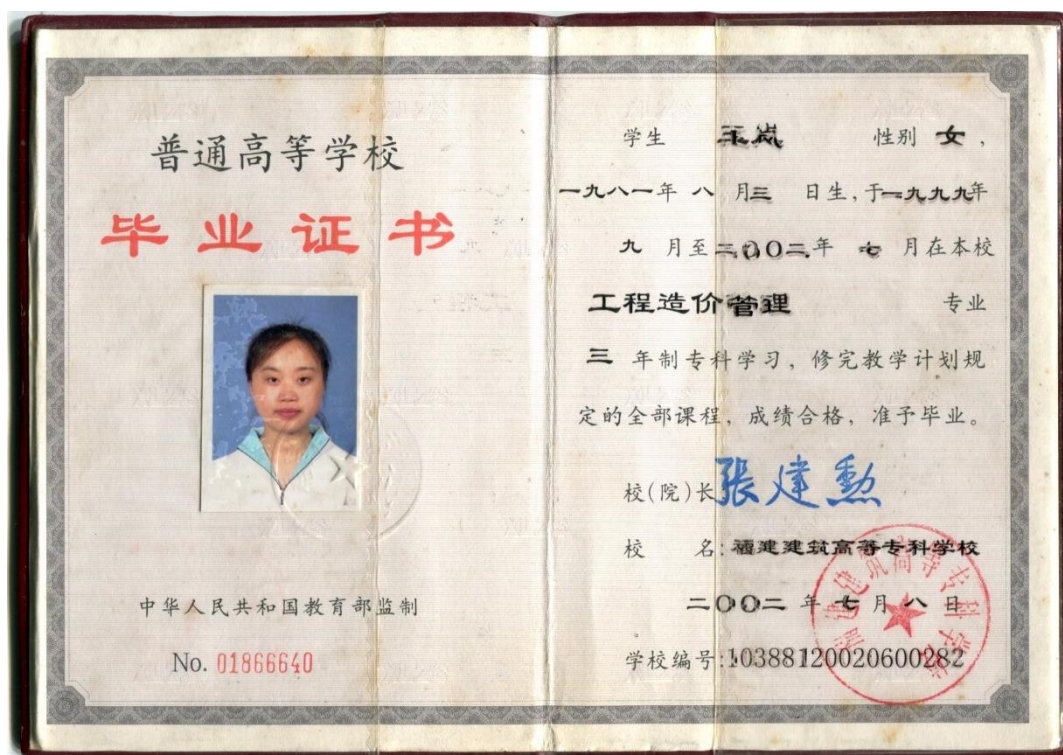 普通高等学校
毕业证书
中华人民共和国教育部监制
No. 01866640
学生 王岚 性别 女,
一九八一年 八 月三 日生,于一九九九年
九 月至二〇〇二年 七 月在本校
工程造价管理 专业
三 年制专科学习,修完教学计划规
定的全部课程,成绩合格,准予毕业。
校(院)长 張建勳
校 名: 福建建筑高等专科学校
二〇〇二 年 七 月 八 日
学校编号:10388120020600282
福建建筑高等专科学校